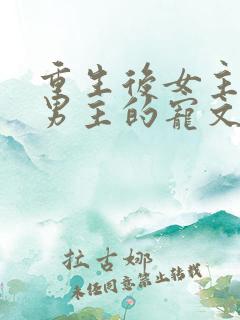 重生後女主
男主的寵文
拉古娜
未經同意禁止轉載